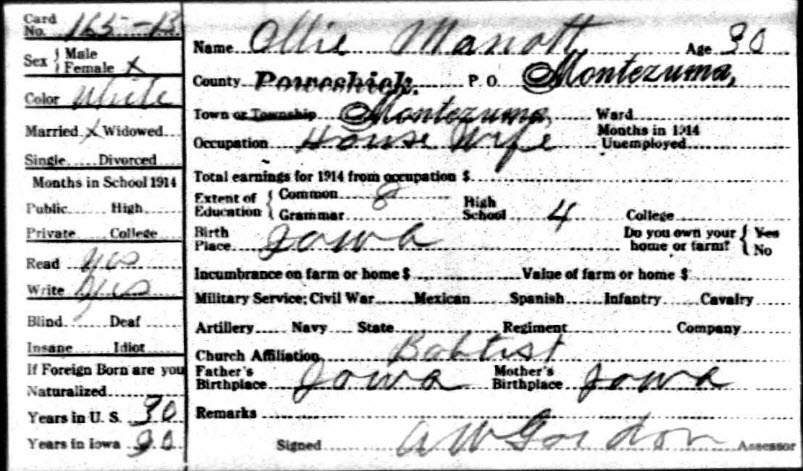 Card No. 165-B
Sex { Male
Female X
Color White
Married X Widowed
Single Divorced
Months in School 1914
Public High
Private College
Read yes
Write yes
Blind Deaf
Insane Idiot
If Foreign Born are you
Naturalized
Years in U. S. 30
Years in Iowa 30
Name Ollie Manott Age 30
County Poweshiek. P. O. Montezuma,
Town or Township Montezuma, Ward
Occupation House Wife Months in 1914 Unemployed
Total earnings for 1914 from occupation $
Extent of Education { Common 8
Grammar High School 4 College
Birth Place Iowa Do you own your home or farm? { Yes
No
Incumbrance on farm or home $ Value of farm or home $
Military Service: Civil War Mexican Spanish Infantry Cavalry
Artillery Navy State Regiment Company
Church Affiliation Babtist
Father's Birthplace Iowa Mother's Birthplace Iowa
Remarks
Signed A W Gordon Assessor